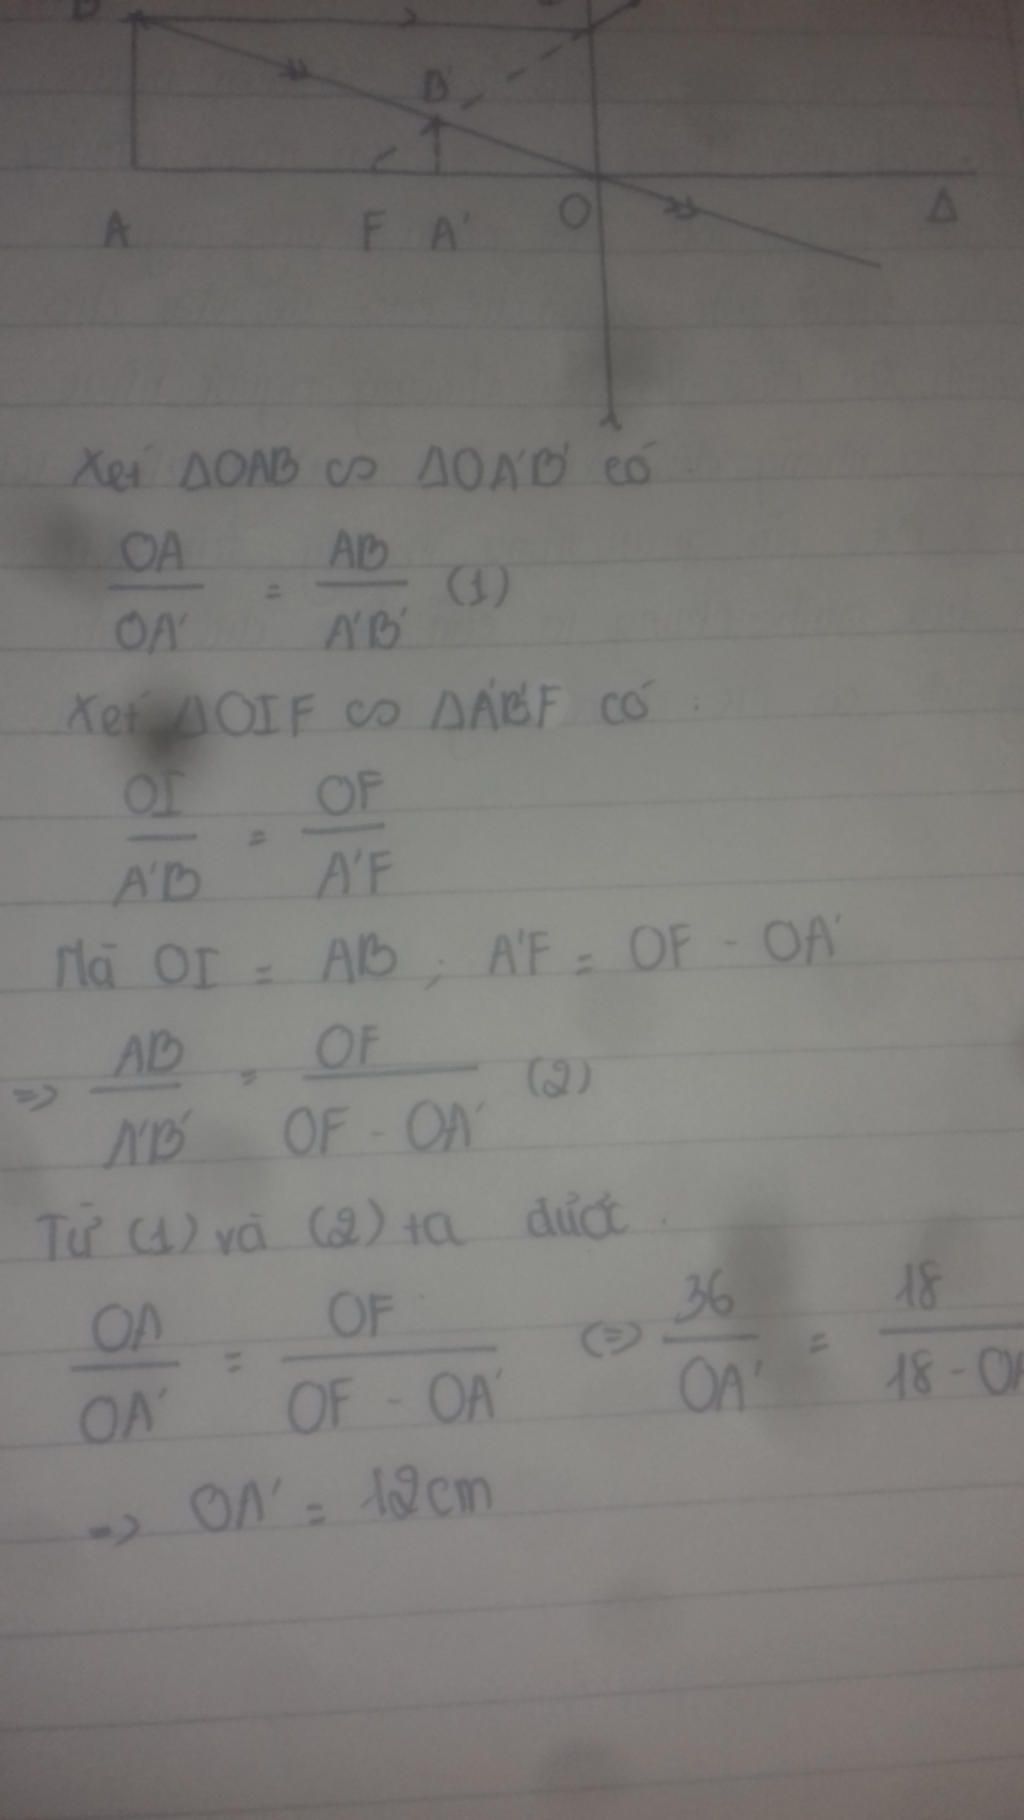 B
A F A' O Δ
Xét ΔOAB ∽ ΔOA'B' có
OA/OA' = AB/A'B' (1)
Xét ΔOIF ∽ ΔA'B'F có :
OI/A'B = OF/A'F
Mà OI = AB ; A'F = OF - OA'
=> AB/A'B' = OF/OF - OA' (2)
Từ (1) và (2) ta được
OA/OA' = OF/OF - OA' (=) 36/OA' = 18/18 - OA
=> OA' = 12cm